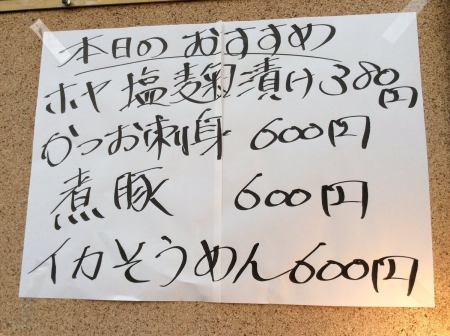 本日のおすすめ
ホヤ塩麹漬け380円
かつお刺身 600円
煮豚 600円
イカそうめん600円